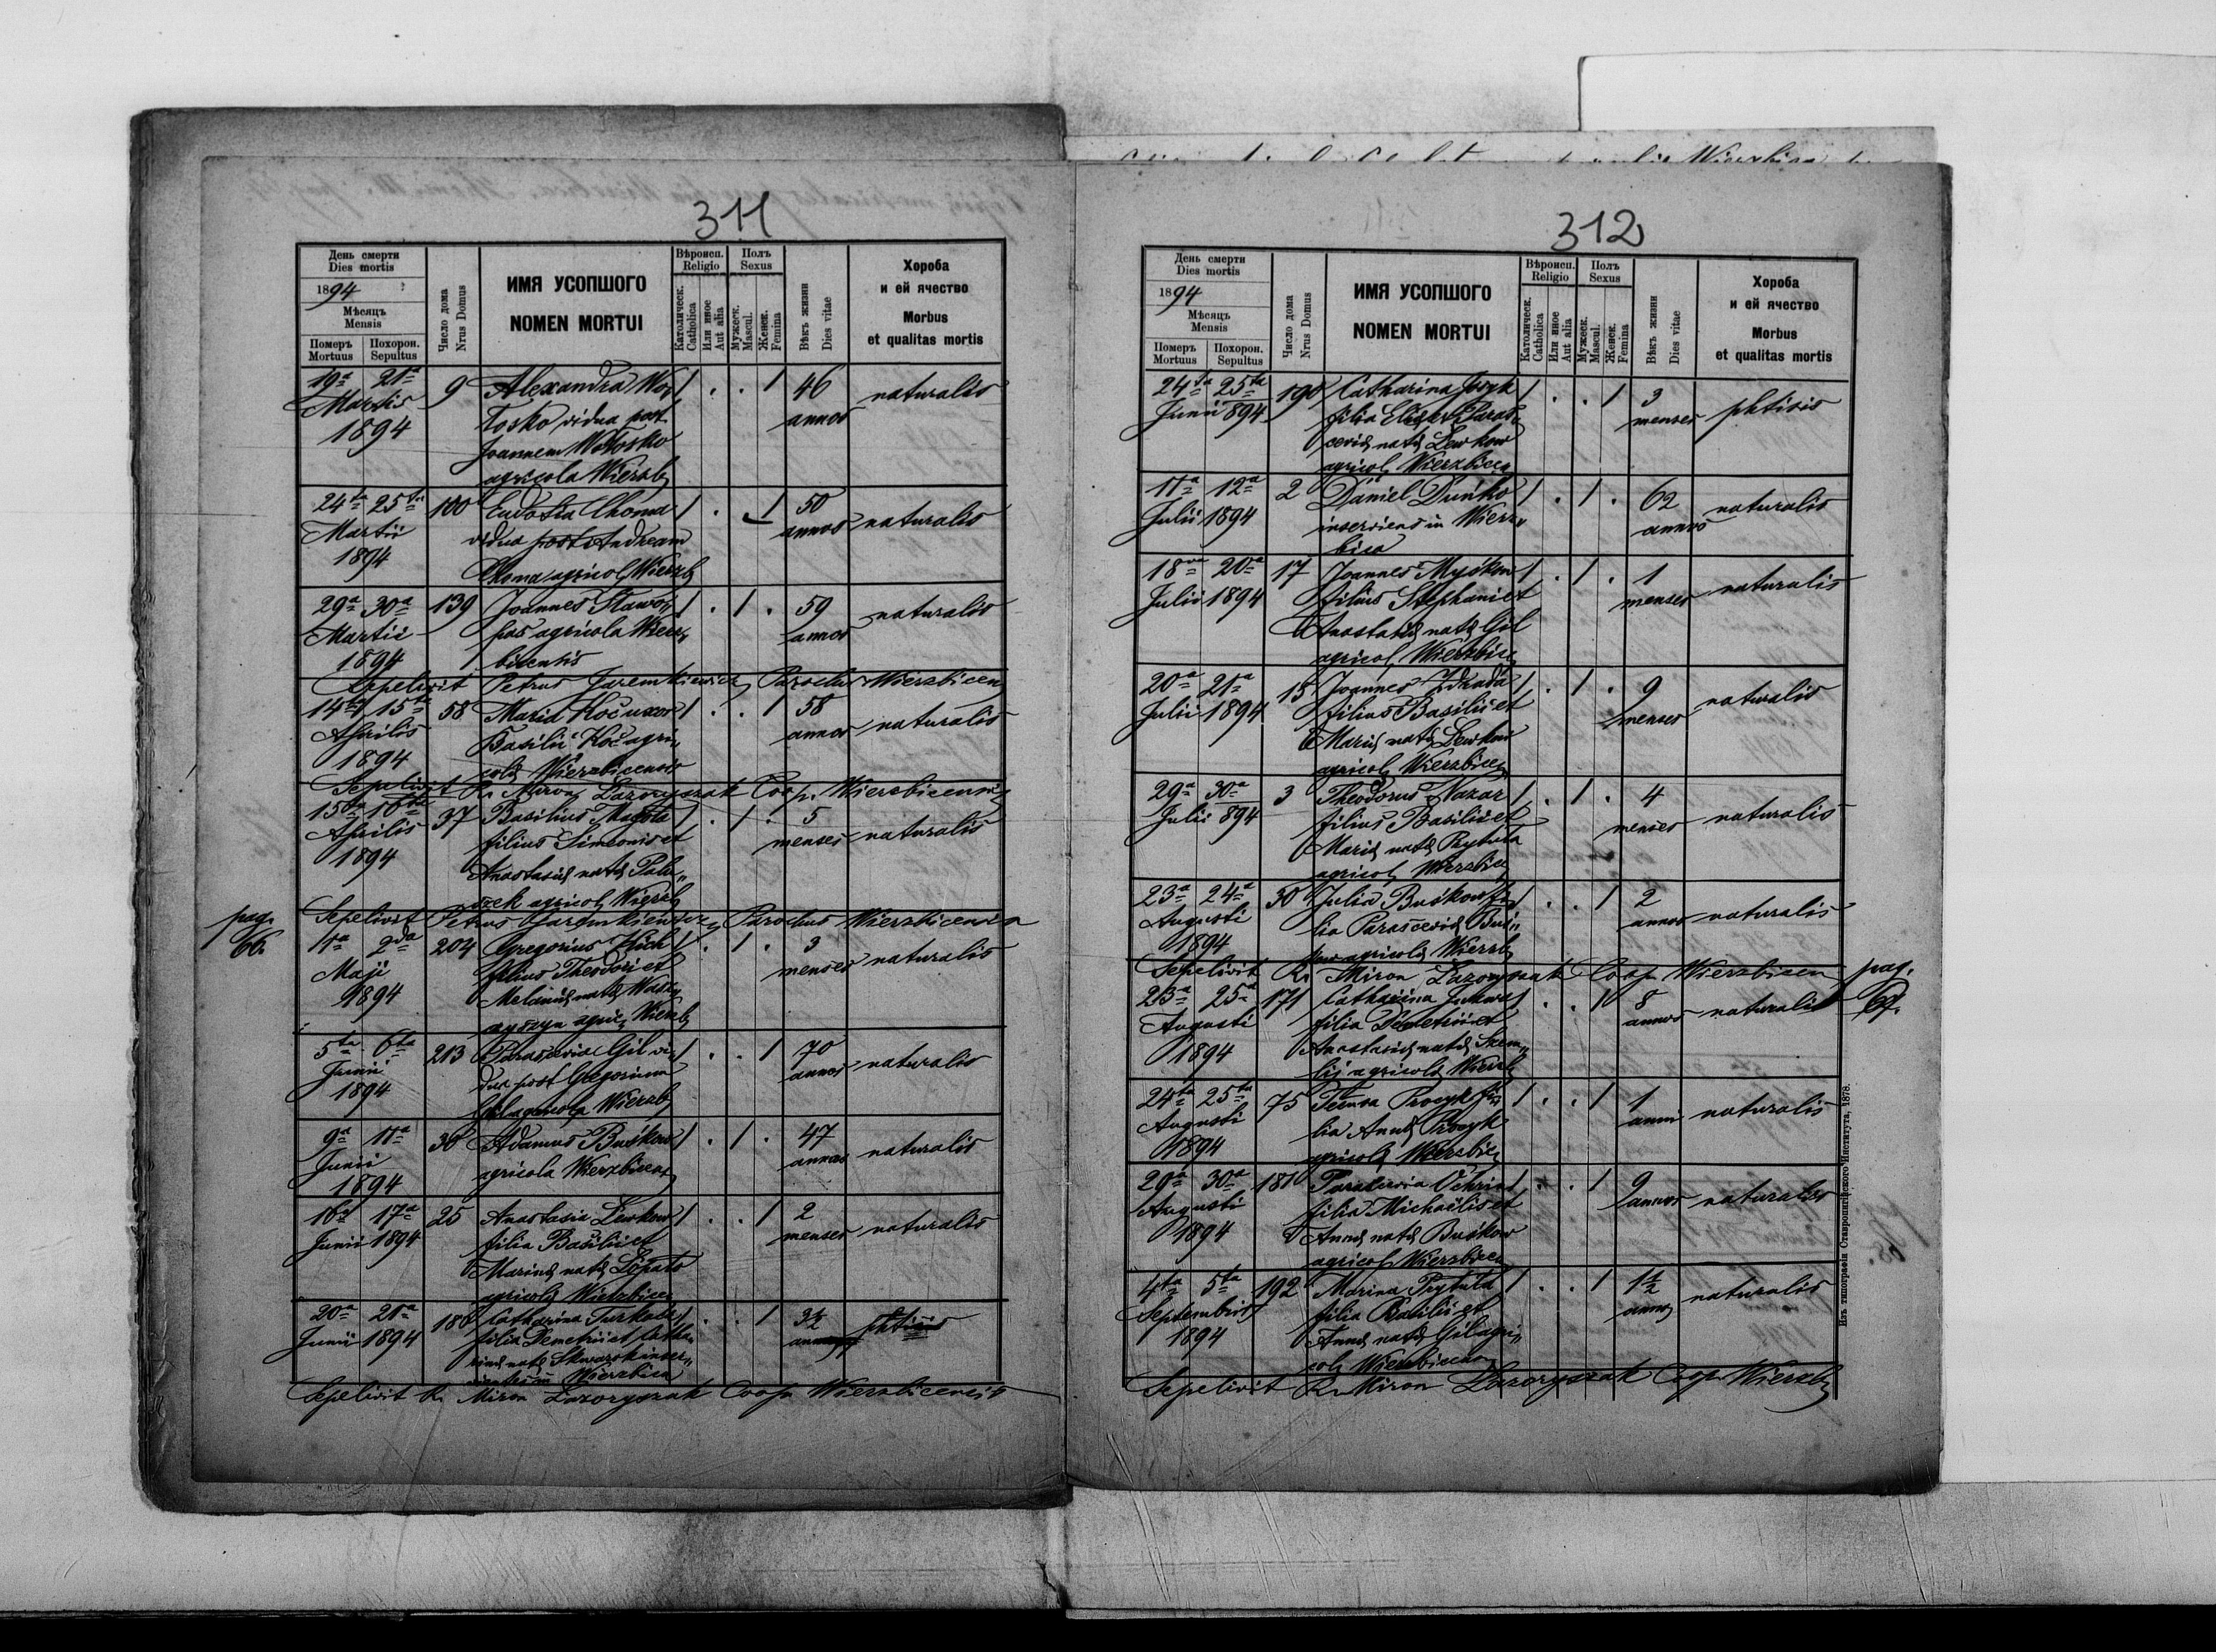 311
День смерти
Dies mortis
1894
Мѣсяцъ
Mensis
Померъ Mortuus
Похорон. Sepultus
Число дома
Nrus Domus
ИМЯ УСОПШОГО
NOMEN MORTUI
Вѣроисп.
Religio
Католическ.
Catholica
Или иное
Aut alia
Полъ
Sexus
Мужеск.
Mascul.
Женск.
Femina
Вѣкъ жизни
Dies vitae
Хороба
и ей ячество
Morbus
et qualitas mortis
19a 21a 9 Alexandra Wo, 1 . . 1 46 naturalis
Martis tosko vidua post annos
1894 Joannem Wotosko
agricola Wierzb
24ta 25ta 100 Eudoxia Choma 1 . 1 50 naturalis
Martii vidua post Andream annos
1894 Choma agricol Wierzb
29a 30a 139 Joannes 1 . 1 . 59 naturalis
Martii pas agricola Wierz, annos
1894 bicensis
Sepelivit Petrus Jaremkiewicz Parochus Wierzbicen
14ta 15ta 58 Maria Koć uxor 1 . . 1 58 naturalis
Aprilis Basilii Koć agri, annos
1894 colae Wierzbicensis
Sepelivit R. Miron Lazoryszak Coop. Wierzbicensis
15ta 16ta 37 Basilius 1 . 1 . 5 naturalis
Aprilis filius Simeonis et menses
1894 Anastasiae natae Palu,
szek agricol Wierzb
pag. 66.
Sepelivit Petrus Jaremkiewicz Parochus Wierzbicensis
1a 2da 204 Gregorius 1 . 1 . 3 naturalis
Maji filius Theodori et menses
1894 Melaniae natae
agric Wierzb
5ta 6ta 213 Parascevia Gil vi, 1 . . 1 70 naturalis
Junii dua post Gregorium annos
1894 Gil agricola Wierzb
9a 11a 30 Adamus Buśkow 1 . 1 . 47 naturalis
Junii agricola Wierzbicen annos
1894
16a 17a 25 Anastasia Lewkow 1 . . 1 2 naturalis
Junii 1894 filia Basilii et menses
Marinae natae Łopato
agricolae Wierzbicen
20a 21a 180 Catharina 1 . . 1 3½ phtisis
Junii 1894 filia Demetrii et Catha,
rinae natae inser,
Wierzbica
Sepelivit R. Miron Lazoryszak Coop. Wierzbicensis
312
День смерти
Dies mortis
1894
Мѣсяцъ
Mensis
Померъ Mortuus
Похорон. Sepultus
Число дома
Nrus Domus
ИМЯ УСОПШОГО
NOMEN MORTUI
Вѣроисп.
Religio
Католическ.
Catholica
Или иное
Aut alia
Полъ
Sexus
Мужеск.
Mascul.
Женск.
Femina
Вѣкъ жизни
Dies vitae
Хороба
и ей ячество
Morbus
et qualitas mortis
24ta 25ta 190 Catharina 1 . . 1 3 phtisis
Junii 894 filia Eliae et Paras, menses
ceviae natae Lewkow
agricol Wierzbicen
11a 12a 2 Daniel Duńko 1 . 1 . 62 naturalis
Julii 1894 inserviens in Wierz, annos
bica
18va 20a 17 Joannes Myśkow 1 . 1 . 1 naturalis
Julii 1894 filius Stephani et menses
Anastasiae natae Gil
agricol Wierzbice
20a 21a 15 Joannes Zdrada 1 . 1 . 9 naturalis
Julii 1894 filius Basilii et menses
Mariae natae Lewkow
agricol Wierzbicen
29a 30a 3 Theodorus Nazar 1 . 1 . 4 naturalis
Julii 894 filius Basilii et menses
Mariae natae Prytuła
agricol Wierzbice
23a 24a 50 Julia Buśkow fi, 1 . . 1 2 naturalis
Augusti lia Parasceviae Buś, annos
1894 kow agricolae Wierzb
Sepelivit R. Miron Lazoryszak Coop. Wierzbicen
pag. 67.
23a 25a 171 Catharina 1 . . 1 8 naturalis
Augusti filia Demetrii et annos
1894 Anastasiae natae Szem,
lij agricolae Wierzb
24ta 25ta 75 Procyk fi, 1 . . 1 1 naturalis
Augusti lia Annae Procyk anni
1894 agricolae Wierzbic
29a 30a 181 Parascevia Ochrin 1 . . 1 9 naturalis
Augusti filia Michaëlis et annos
1894 Annae natae Buśkow
agricol Wierzbicen
4ta 5ta 192 Marina Prytuła 1 . . 1 1½ naturalis
Septembris filia Basilii et anno
1894 Annae natae Gil agri,
colae Wierzbicen
Sepelivit R. Miron Lazoryszak Coop. Wierzb
Изъ типографіи Ставропигійского Института, 1878.